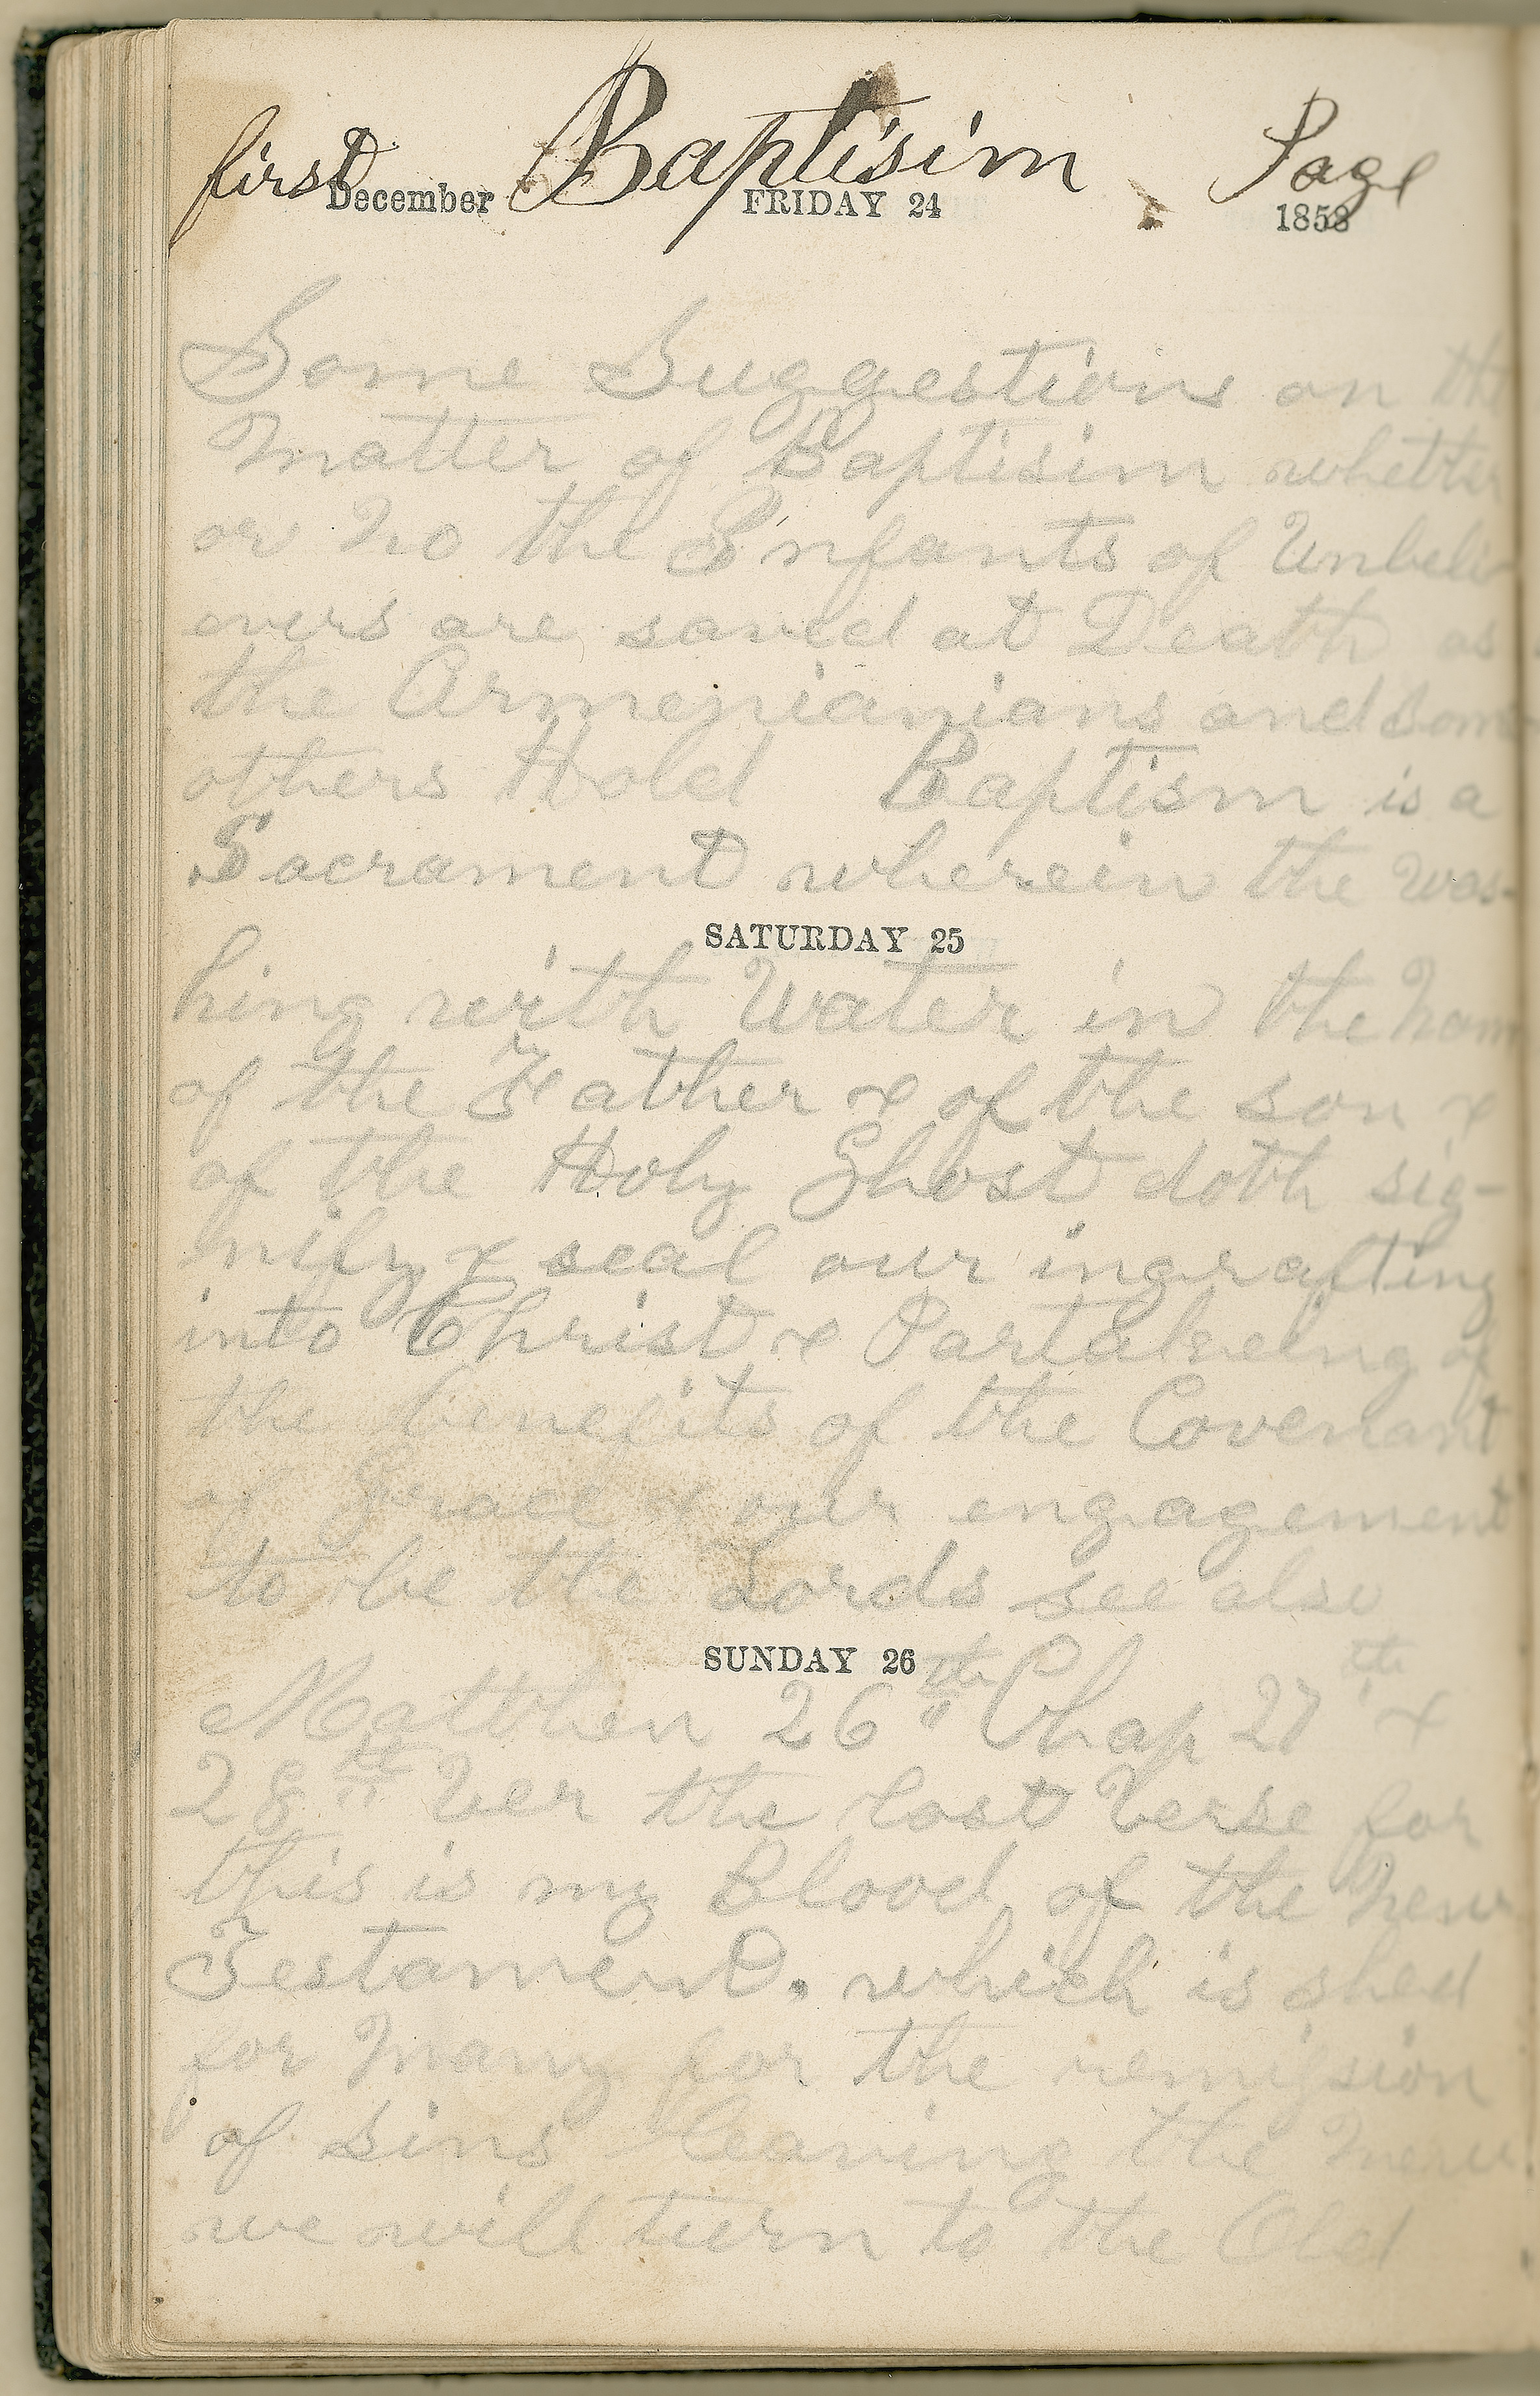 first Baptisim Page
December FRIDAY 24 1858
Some Suggestions on the
Matter of Baptisim whether
or No the Infants of Unbeli
evers are saved at Death as
the Armenianians and Some
others Hold Baptism is a
Sacrament wherein the Was-
hing with Water in the Nam
of the Father & of the son &
of the Holy Ghost doth sig-
nify & seal our ingrafting
into Christ & Partakeing of
the benefits of the Covenant
of Grace & our engagement
to be the Lords see also
SATURDAY 25
SUNDAY 26
Matthew 26th Chap 27th &
28th Ver the last Verse for
this is my Blood of the New
Testament. which is shed
for Many for the remission
of sins leaving the New
we will turn to the Old